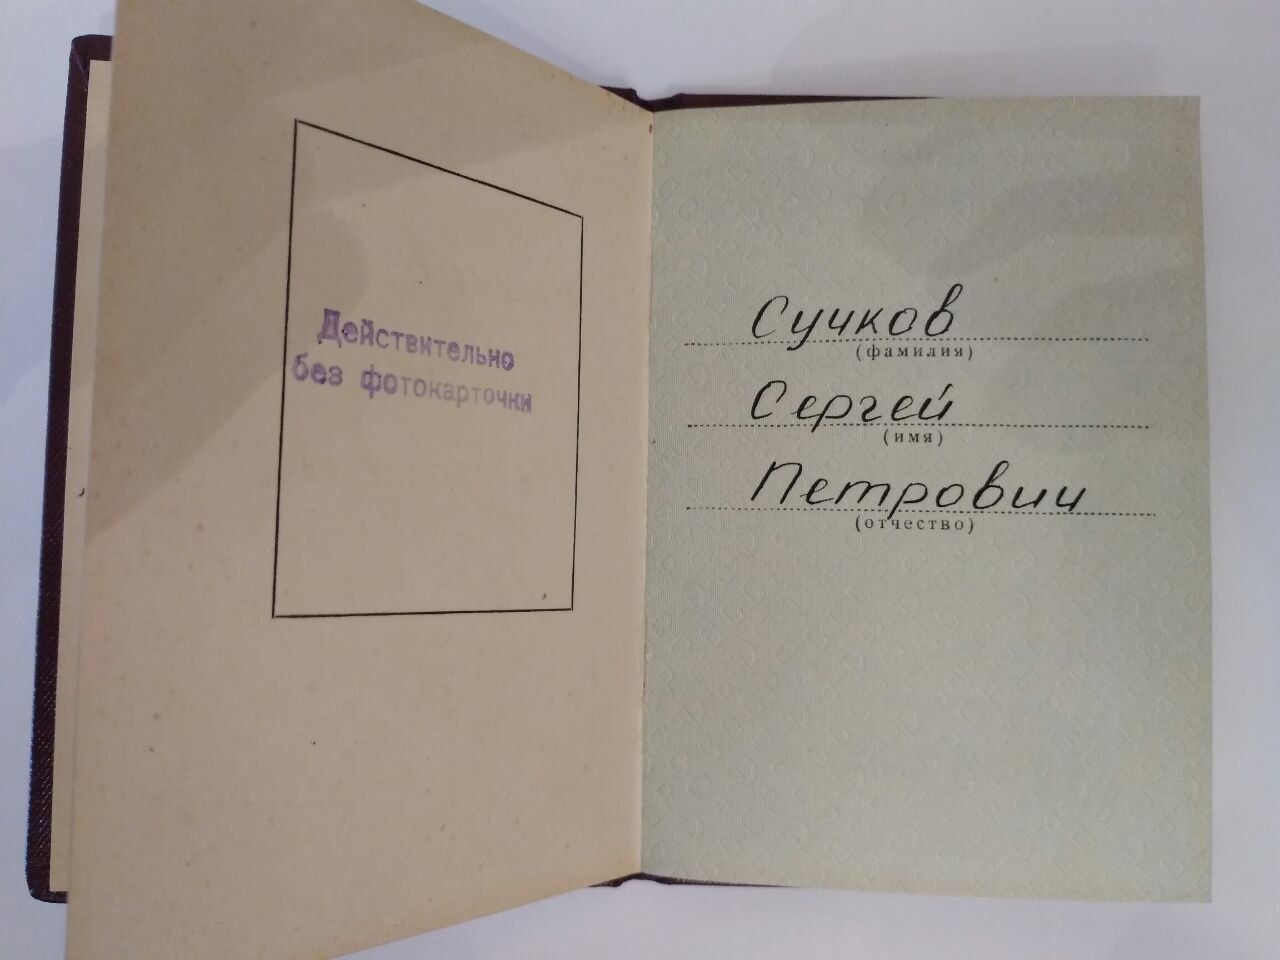 Действительно
без фотокарточки
Сучков
(фамилия)
Сергей
(имя)
Петрович
(отчество)